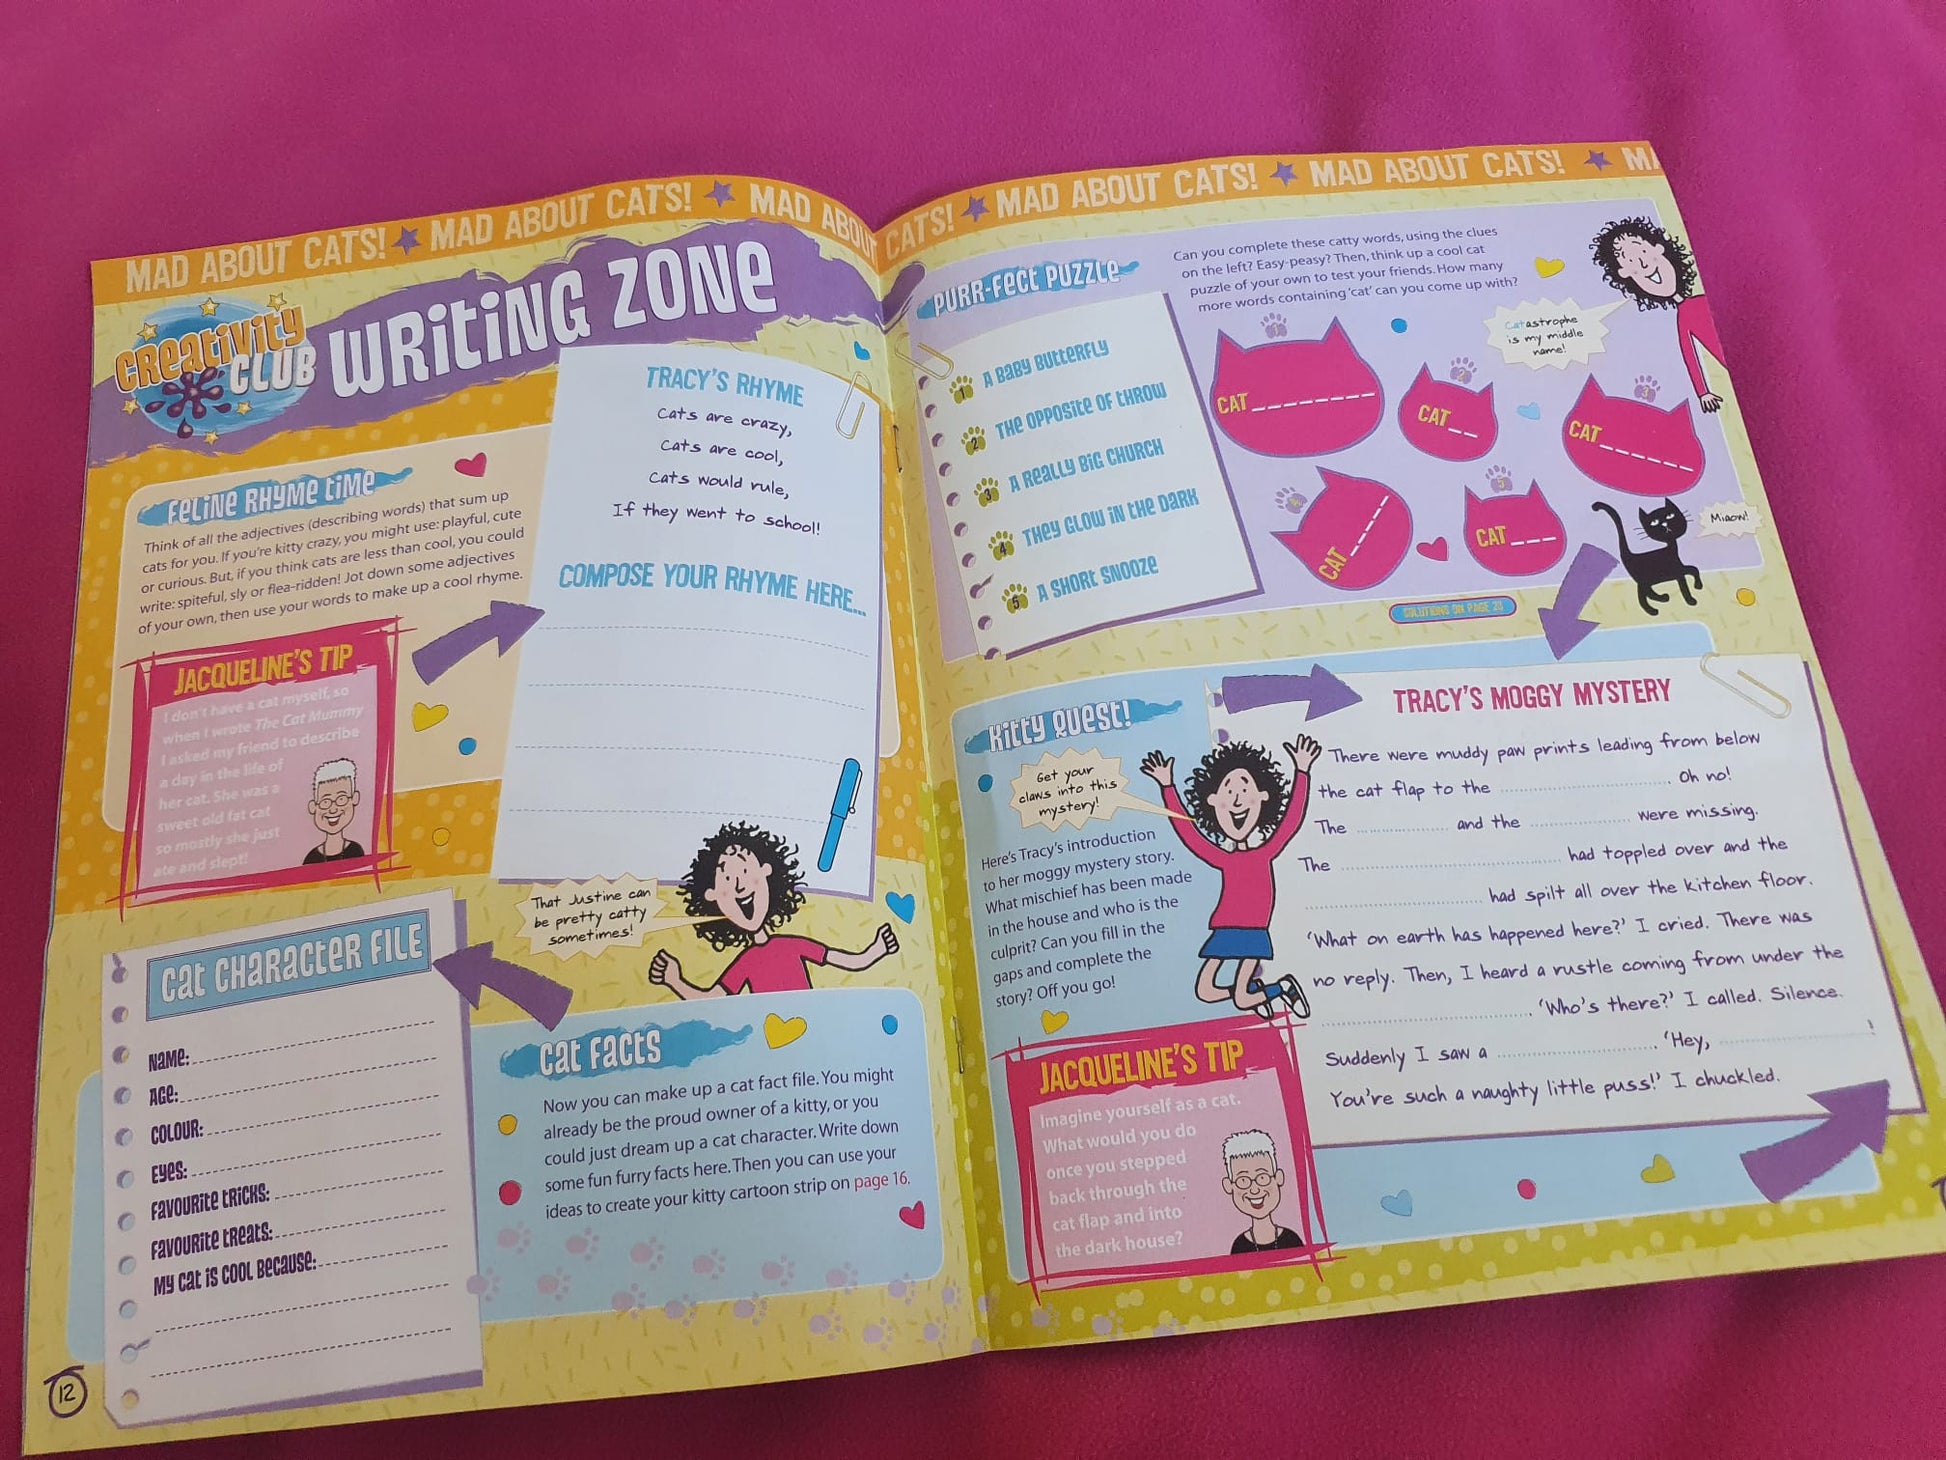 MAD ABOUT CATS! ★ MAD ABOUT CATS! ★ MAD ABOUT CATS! ★ MAD ABOUT CATS! ★ MAD ABOUT CATS! ★ MA
CREATIVITY
CLUB
WRITING ZONE
FELINE RHYME TIME
Think of all the adjectives (describing words) that sum up
cats for you. If you're kitty crazy, you might use: playful, cute
or curious. But, if you think cats are less than cool, you could
write: spiteful, sly or flea-ridden! Jot down some adjectives
of your own, then use your words to make up a cool rhyme.
JACQUELINE'S TIP
I don't have a cat myself, so
when I wrote The Cat Mummy
I asked my friend to describe
a day in the life of
her cat. She was a
sweet old fat cat
so mostly she just
ate and slept!
TRACY'S RHYME
Cats are crazy,
Cats are cool,
Cats would rule,
If they went to school!
COMPOSE YOUR RHYME HERE...
That Justine can
be pretty catty
sometimes!
CAT CHARACTER FILE
NAME:
AGE:
COLOUR:
EYES:
FAVOURITE TRICKS:
FAVOURITE TREATS:
MY CAT IS COOL BECAUSE:
CAT FACTS
Now you can make up a cat fact file. You might
already be the proud owner of a kitty, or you
could just dream up a cat character. Write down
some fun furry facts here. Then you can use your
ideas to create your kitty cartoon strip on page 16.
12
PURR-FECT PUZZLE
Can you complete these catty words, using the clues
on the left? Easy-peasy? Then, think up a cool cat
puzzle of your own to test your friends. How many
more words containing 'cat' can you come up with?
1 A BABY BUTTERFLY
2 THE OPPOSITE OF THROW
3 A REALLY BIG CHURCH
4 THEY GLOW IN THE DARK
5 A SHORT SNOOZE
1
CAT_ _ _ _ _ _ _ _
2
CAT_ _
3
CAT_ _ _ _ _ _
4
CAT_ _ _ _
5
CAT_ _ _
Catastrophe
is my middle
name!
Miaow!
SOLUTIONS ON PAGE 23
KITTY QUEST!
Get your
claws into this
mystery!
Here's Tracy's introduction
to her moggy mystery story.
What mischief has been made
in the house and who is the
culprit? Can you fill in the
gaps and complete the
story? Off you go!
JACQUELINE'S TIP
Imagine yourself as a cat.
What would you do
once you stepped
back through the
cat flap and into
the dark house?
TRACY'S MOGGY MYSTERY
There were muddy paw prints leading from below
the cat flap to the .............................. . Oh no!
The .................... and the .................... were missing.
The .............................. had toppled over and the
.............................. had spilt all over the kitchen floor.
'What on earth has happened here?' I cried. There was
no reply. Then, I heard a rustle coming from under the
.............................. . 'Who's there?' I called. Silence.
Suddenly I saw a .............................. . 'Hey, .............................. !
You're such a naughty little puss!' I chuckled.